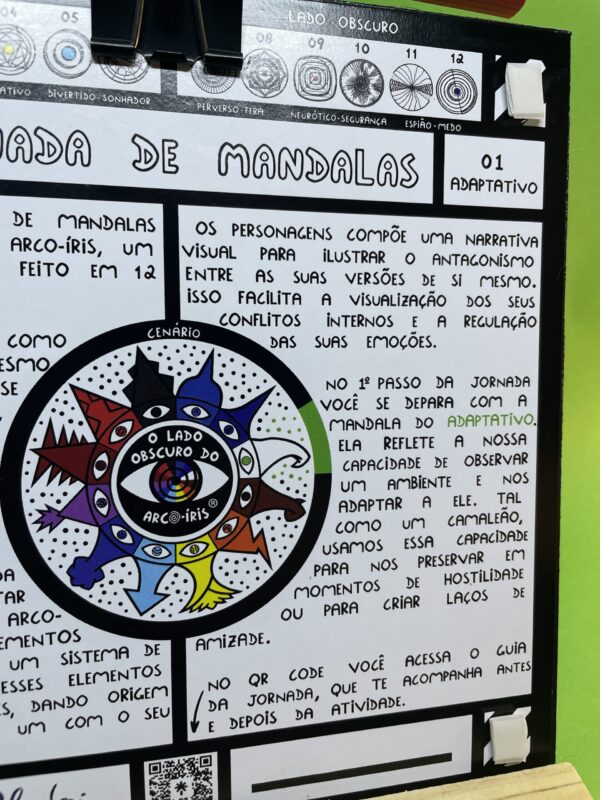 LADO OBSCURO
04 05 08 09 10 11 12
DIVERTIDO-SONHADOR PERVERSO-FERA NEURÓTICO-SEGURANÇA ESPIÃO-MEDO
DE MANDALAS
01
ADAPTATIVO
DE MANDALAS
ARCO-ÍRIS, UM
FEITO EM 12
COMO
SE
OS PERSONAGENS COMPÕE UMA NARRATIVA
VISUAL PARA ILUSTRAR O ANTAGONISMO
ENTRE AS SUAS VERSÕES DE SI MESMO.
ISSO FACILITA A VISUALIZAÇÃO DOS SEUS
CONFLITOS INTERNOS E A REGULAÇÃO
DAS SUAS EMOÇÕES.
CENÁRIO
O LADO
OBSCURO DO
ARCO-ÍRIS®
NO 1º PASSO DA JORNADA
VOCÊ SE DEPARA COM A
MANDALA DO ADAPTATIVO.
ELA REFLETE A NOSSA
CAPACIDADE DE OBSERVAR
UM AMBIENTE E NOS
ADAPTAR A ELE. TAL
COMO UM CAMALEÃO,
USAMOS ESSA CAPACIDADE
PARA NOS PRESERVAR EM
MOMENTOS DE HOSTILIDADE
OU PARA CRIAR LAÇOS DE
AMIZADE.
ARCO-
UM SISTEMA DE
ESSES ELEMENTOS
DANDO ORIGEM
UM COM O SEU
NO QR CODE VOCÊ ACESSA O GUIA
DA JORNADA, QUE TE ACOMPANHA ANTES
E DEPOIS DA ATIVIDADE.